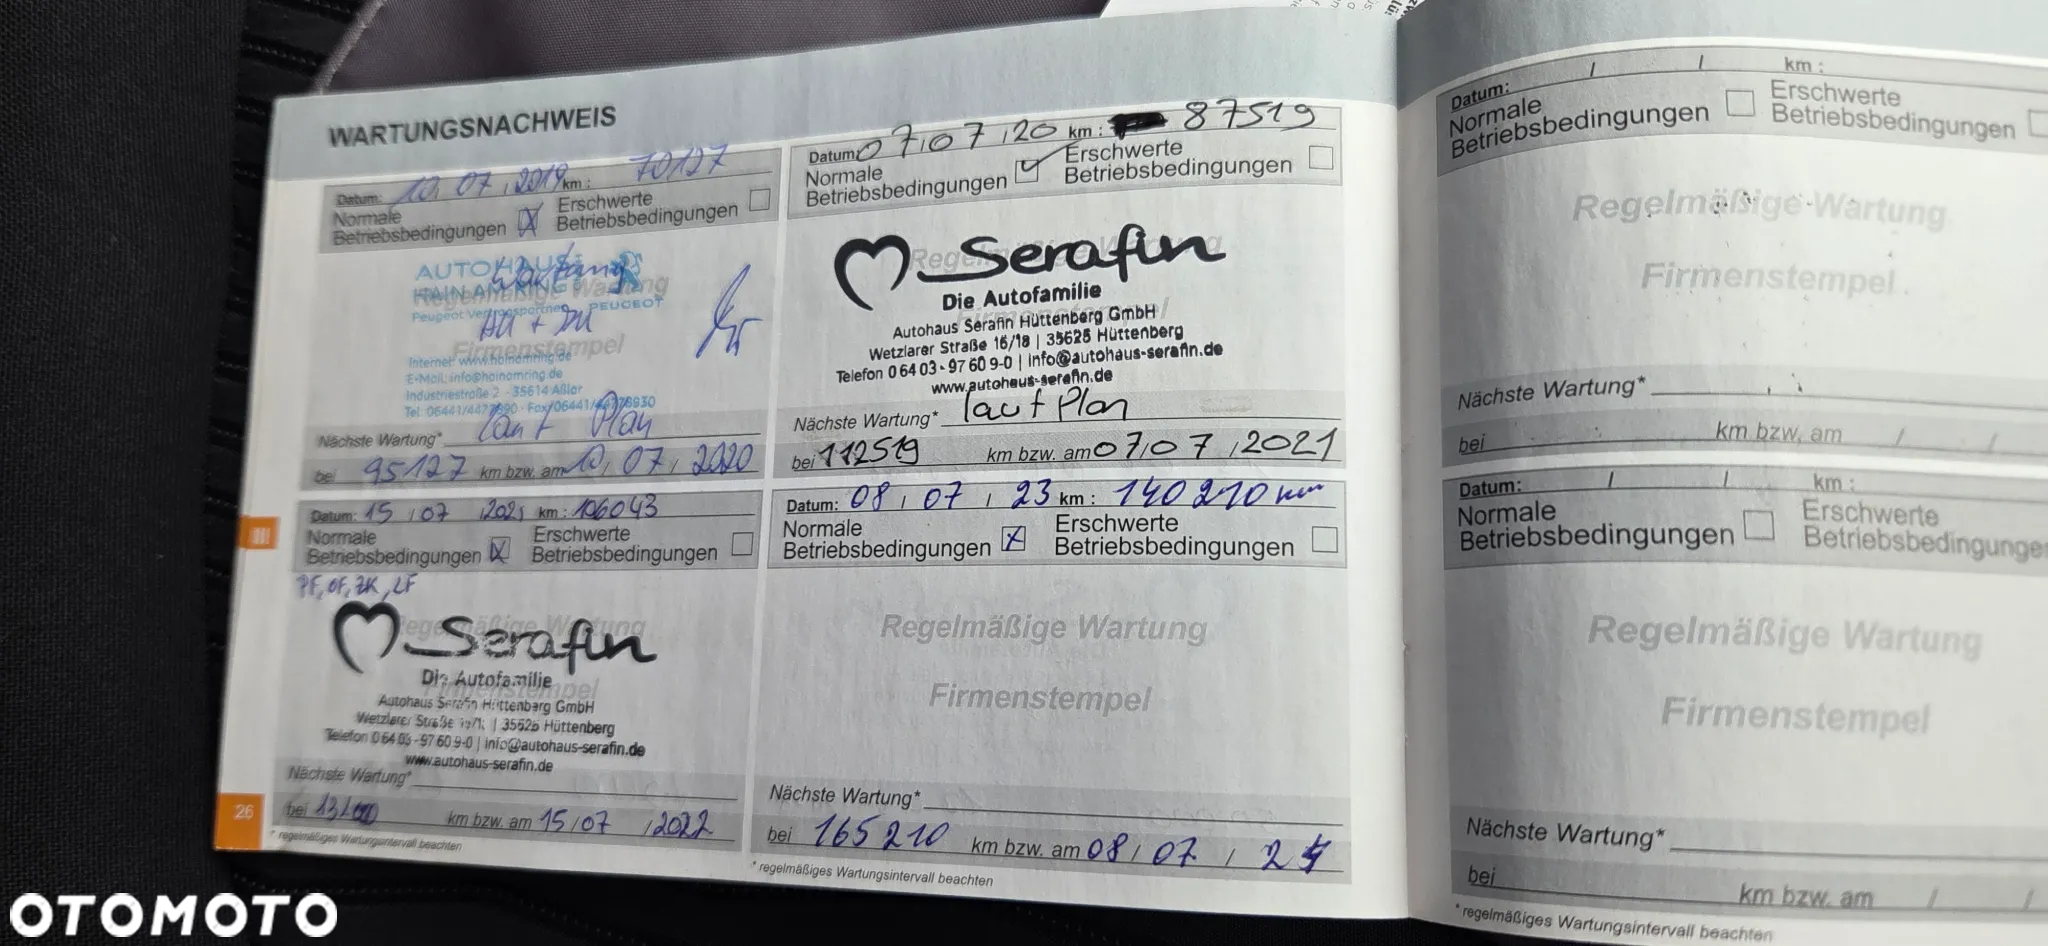 WARTUNGSNACHWEIS
Datum: 10, 07, 2019 km: 70127
Normale
Betriebsbedingungen
Erschwerte
Betriebsbedingungen
AUTOHAUS
HAIN AM RING
Regelmäßige Wartung
Wartung
Peugeot Vertragspartner PEUGEOT
AU +
Firmenstempel
Internet: www.hainamring.de
E-Mail: info@hainamring.de
Industriestraße 2 - 35614 Aßlar
Fax 06441/4478930
Nächste Wartung* laut Plan
bei 95127 km bzw. am 10, 07, 2020
Datum: 07/07/20 km: 87519
Normale
Betriebsbedingungen
Erschwerte
Betriebsbedingungen
Serafin
Die Autofamilie
Autohaus Serafin Hüttenberg GmbH
Wetzlarer Straße 16/18 | 35625 Hüttenberg
Telefon 0 64 03 - 97 60 9-0 | info@autohaus-serafin.de
www.autohaus-serafin.de
Nächste Wartung* laut Plan
bei 112519 km bzw. am 07/07/2021
Datum: 15/07/2021 km: 106043
Normale
Betriebsbedingungen
Erschwerte
Betriebsbedingungen
PF, OF, ZK, LF
Serafin
Die Autofamilie
Autohaus Serafin Hüttenberg GmbH
Wetzlarer Straße | 35625 Hüttenberg
Telefon 0 64 03 - 97 60 9-0 | info@autohaus-serafin.de
www.autohaus-serafin.de
Nächste Wartung*
bei km bzw. am 15/07/2022
* regelmäßiges Wartungsintervall beachten
26
Datum: 08/07/23 km: 140210 km
Normale
Betriebsbedingungen
Erschwerte
Betriebsbedingungen
Regelmäßige Wartung
Firmenstempel
Nächste Wartung*
bei 165210 km bzw. am 08/07/24
* regelmäßiges Wartungsintervall beachten
Datum: / / km:
Normale
Betriebsbedingungen
Erschwerte
Betriebsbedingungen
Regelmäßige Wartung
Firmenstempel
Nächste Wartung*
bei km bzw. am / /
Datum: / / km:
Normale
Betriebsbedingungen
Erschwerte
Betriebsbedingunge
Regelmäßige Wartung
Firmenstempel
Nächste Wartung*
bei km bzw. am / /
* regelmäßiges Wartungsintervall beachten
OTOMOTO